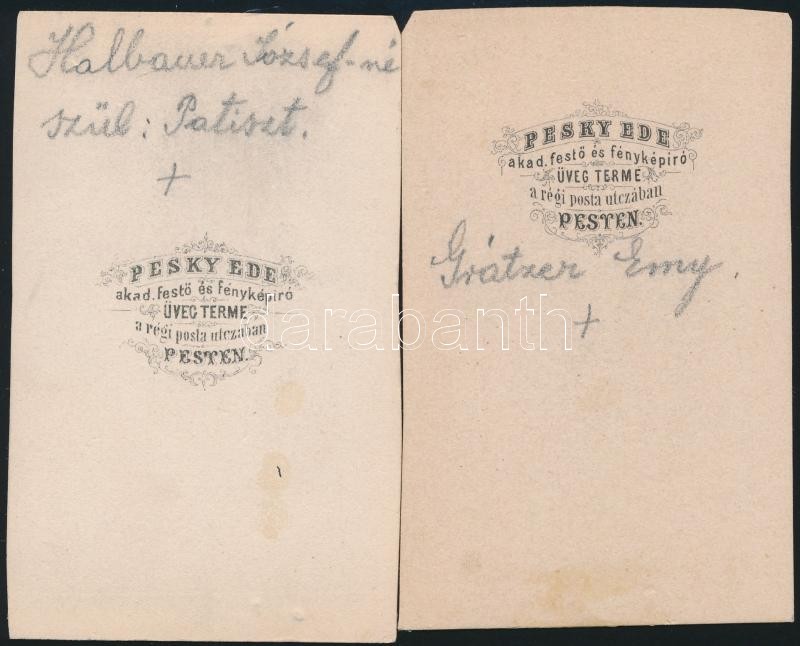 Halbauer József-né
szül: Patiszt.
+
PESKY EDE
akad. festő és fényképiró
ÜVEG TERME
a régi posta utczában
PESTEN.
PESKY EDE
akad. festő és fényképiró
ÜVEG TERME
a régi posta utczában
PESTEN.
Grátzer Emy.
+
darabanth